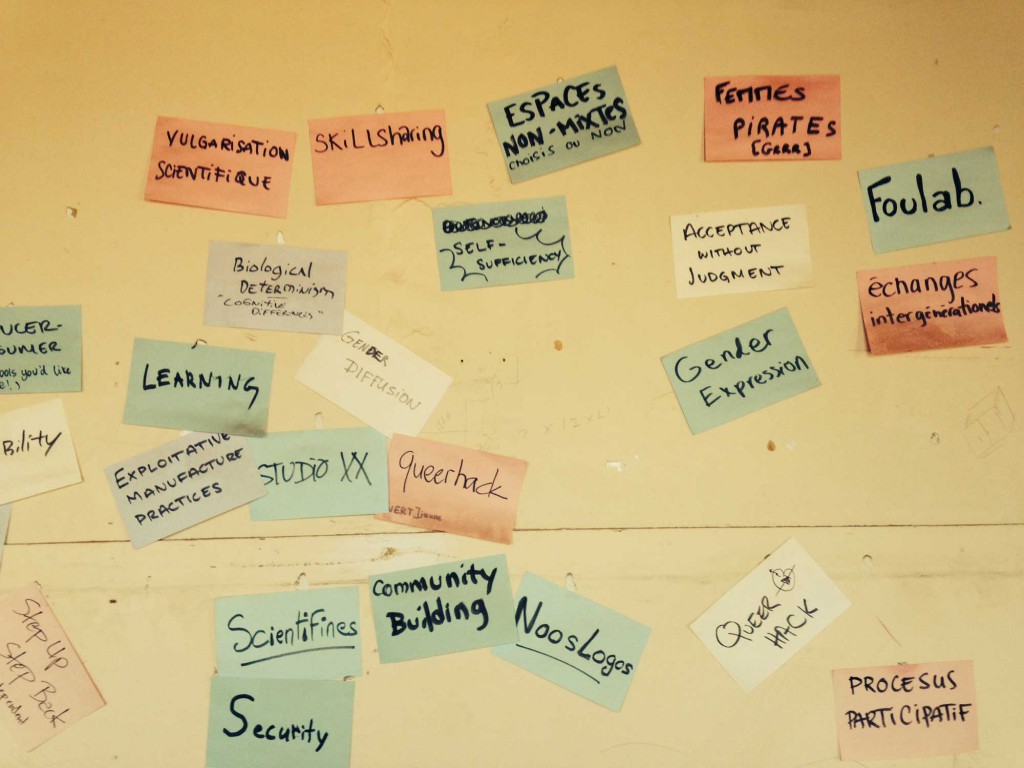 VULGARISATION
SCIENTIFIQUE
SKiLLSharing
ESPACEs
NON-MIXTES
CHOISIS OU NON
FEMMES
PIRATEs
[GRRR]
Foulab.
SELF-
SUFFICIENCY
ACCEPTANCE
WITHOUT
JUDGMENT
échanges
intergénérationels
Biological
DETERMINISM
"COGNITIVE
DIFFERENCES"
GENDER
DIFFUSION
Gender
Expression
UCER-
SUMER
ools you'd like
e!)
LEARNING
BiLity
EXPLOITATIVE
MANUFACTURE
PRACTICES
STUDIO XX
queerhack
Step Up
Step Back
ScientiFines
Community
Building
NoosLogos
QUEER
HACK
Security
PROCESUS
PARTICIPATIF